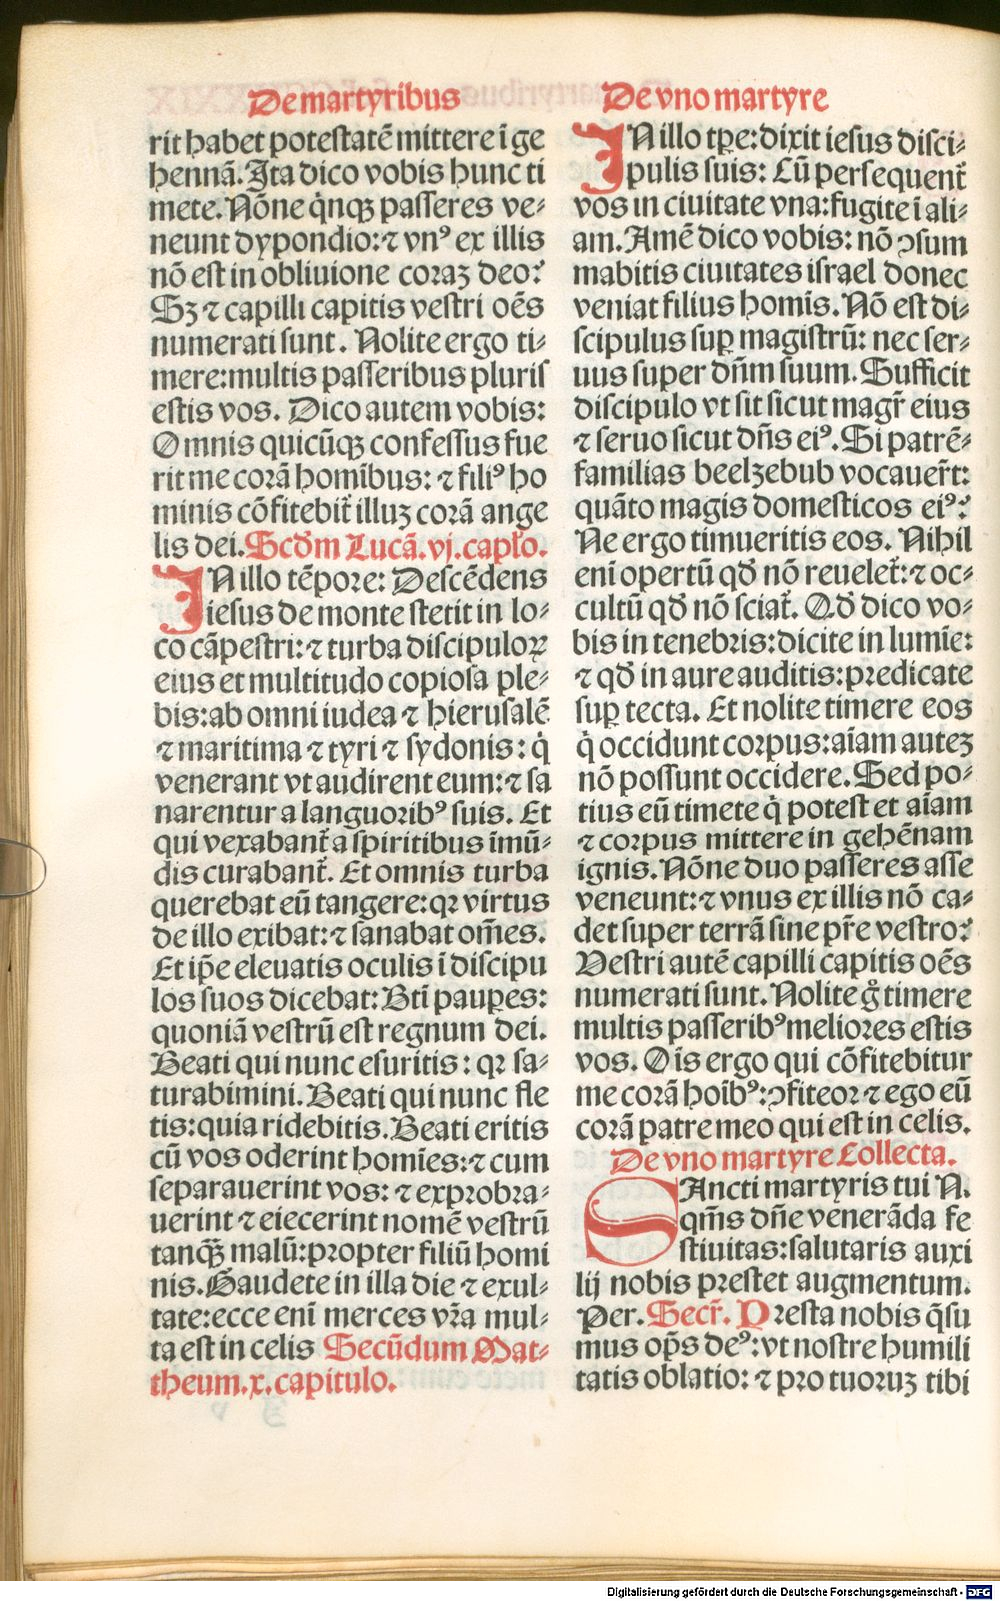 De martyribus
rit habet potestatē mittere ī ge
hennā. Ita dico vobis hunc ti
mete. Nōne q̇nqꝫ passeres ve⸗
neunt dypondio: ⁊ vnꝰ ex illis
nō est in obliuione coraꝫ deo?
Sꝫ ⁊ capilli capitis vestri oēs
numerati sunt. Nolite ergo ti⸗
mere: multis passeribus pluris
estis vos. Dico autem vobis:
Omnis quicūqꝫ confessus fue
rit me corā homībus: ⁊ filiꝰ ho
minis cōfitebit᷑ illuꝫ corā ange
lis dei. Scd̄m Lucā. vj. capl̄o.
IN illo tēpore: Descēdens
iesus de monte stetit in lo⸗
co cāpestri: ⁊ turba discipuloꝝ
eius et multitudo copiosa ple⸗
bis: ab omni iudea ⁊ hierusalē
⁊ maritima ⁊ tyri ⁊ sydonis: q̇
venerant vt audirent eum: ⁊ sa
narentur a languoribꝰ suis. Et
qui vexabant᷑ a spiritibus īmū⸗
dis curabant᷑. Et omnis turba
querebat eū tangere: qꝛ virtus
de illo exibat: ⁊ sanabat om̄es.
Et ip̄e eleuatis oculis ī discipu
los suos dicebat: Bt̄i pauꝑes:
quoniā vestrū est regnum dei.
Beati qui nunc esuritis: qꝛ sa⸗
turabimini. Beati qui nunc fle
tis: quia ridebitis. Beati eritis
cū vos oderint homīes: ⁊ cum
separauerint vos: ⁊ exprobra⸗
uerint ⁊ eiecerint nomē vestrū
tanqꝫ̄ malū: propter filiū homi
nis. Gaudete in illa die ⁊ exul⸗
tate: ecce enī merces vr̄a mul⸗
ta est in celis Secūdum Mat⸗
theum. x. capitulo.
De vno martyre
IN illo tp̄e: dixit iesus disci⸗
pulis suis: Cū persequent᷑
vos in ciuitate vna: fugite ī ali⸗
am. Amē dico vobis: nō ꝯsum
mabitis ciuitates israel donec
veniat filius homīs. Nō est di⸗
scipulus suꝑ magistrū: nec ser⸗
uus super dn̄m suum. Sufficit
discipulo vt sit sicut magr̄ eius
⁊ seruo sicut dn̄s eiꝰ. Si patrē⸗
familias beelzebub vocauer̄t:
quāto magis domesticos eiꝰ?
Ne ergo timueritis eos. Nihil
enī opertū qd̄ nō reuelet᷑: ⁊ oc⸗
cultū qd̄ nō sciat᷑. Qd̄ dico vo⸗
bis in tenebris: dicite in lumīe:
⁊ qd̄ in aure auditis: predicate
suꝑ tecta. Et nolite timere eos
q̇ occidunt corpus: aīam auteꝫ
nō possunt occidere. Sed po⸗
tius eū timete q̇ potest et aīam
⁊ corpus mittere in gehēnam
ignis. Nōne duo passeres asse
veneunt: ⁊ vnus ex illis nō ca⸗
det super terrā sine pr̄e vestro?
Vestri autē capilli capitis oēs
numerati sunt. Nolite g̊ timere
multis passeribꝰ meliores estis
vos. Oīs ergo qui cōfitebitur
me corā hoībꝰ: ꝯfiteor ⁊ ego eū
corā patre meo qui est in celis.
De vno martyre Collecta.
SAncti martyris tui N.
qm̄s dn̄e venerāda fe
stiuitas: salutaris auxi
lij nobis prestet augmentum.
Per. Secr̄. Presta nobis q̄su
mus op̄s deꝰ: vt nostre humili
tatis oblatio: ⁊ pro tuoruꝫ tibi
Digitalisierung gefördert durch die Deutsche Forschungsgemeinschaft - DFG